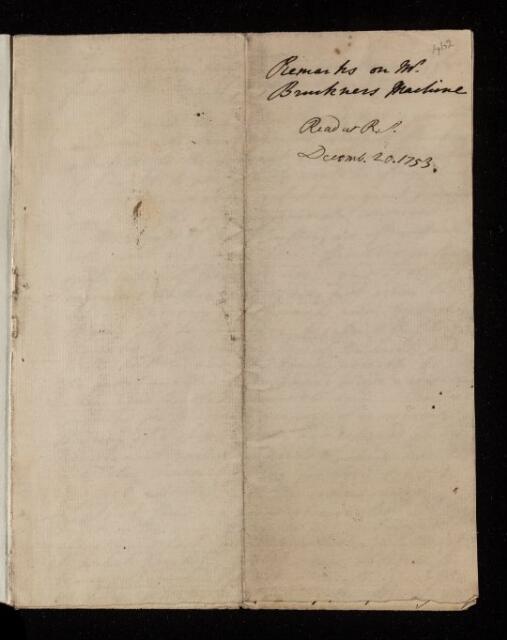 462
Remarks on Mr.
Bruckners Machine
Read at R.S.
Decemb. 20. 1753.